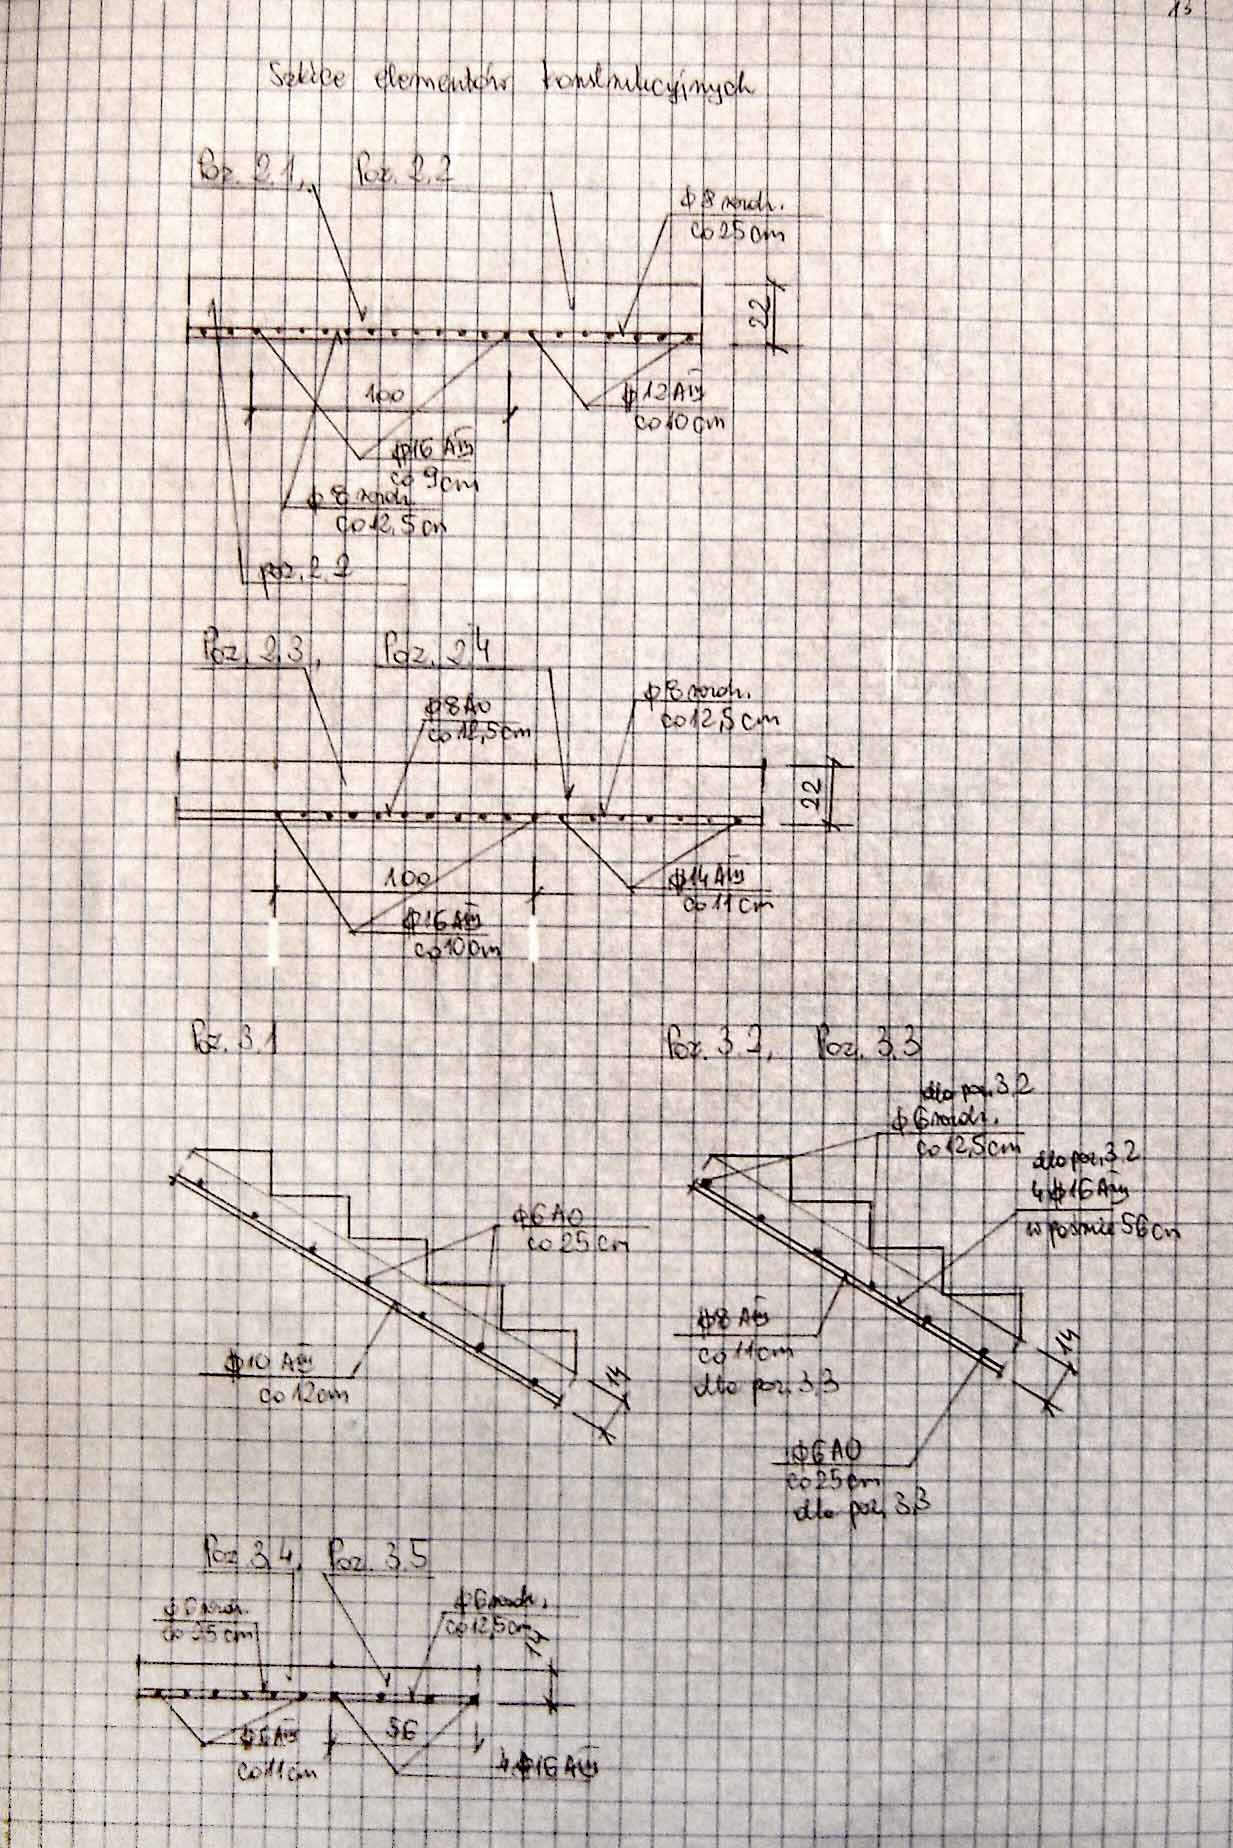 13
Szkice elementów konstrukcyjnych
Poz. 2.1, Poz. 2.2
ϕ8 rozdz.
co 25 cm
22
100
ϕ12 AIII
co 10 cm
ϕ16 AIII
co 9 cm
ϕ8 rozdz.
co 12,5 cm
poz. 2.2
Poz. 2.3, Poz. 2.4
ϕ8 A0
co 12,5 cm
ϕ8 rozdz.
co 12,5 cm
22
100
ϕ14 AIII
co 11 cm
ϕ16 AIII
co 10 cm
Poz. 3.1
Poz. 3.2, Poz. 3.3
dla poz. 3.2
ϕ6 rozdz.
co 12,5 cm
dla poz. 3.2
4 ϕ16 AIII
w paśmie 56 cm
ϕ6 A0
co 25 cm
ϕ10 AIII
co 12 cm
14
ϕ8 AIII
co 11 cm
dla poz. 3.3
14
ϕ6 A0
co 25 cm
dla poz. 3.3
Poz. 3.4, Poz. 3.5
ϕ6 rozdz.
co 25 cm
ϕ6 rozdz.
co 12,5 cm
56
co 11 cm
4 ϕ16 AIII